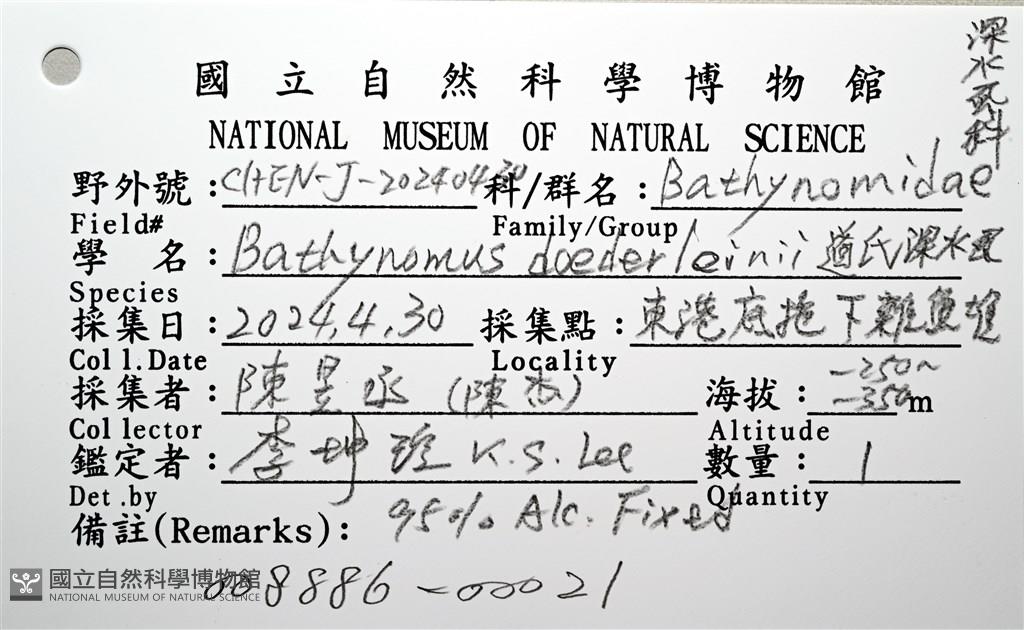 深水虱科
國立自然科學博物館
NATIONAL MUSEUM OF NATURAL SCIENCE
野外號：CHEN-J-20240430 科/群名：Bathynomidae
Field# Family/Group
學 名：Bathynomus doederleinii 道氏深水虱
Species
採集日：2024.4.30 採集點：東港底拖下雜魚堆
Coll.Date Locality
採集者：陳昱丞(陳杰) 海拔：-250~-350m
Collector Altitude
鑑定者：李坤瑄 K.S. Lee 數量：1
Det.by Quantity
備註(Remarks)：95% Alc. Fixed
008886-00021
國立自然科學博物館
NATIONAL MUSEUM OF NATURAL SCIENCE